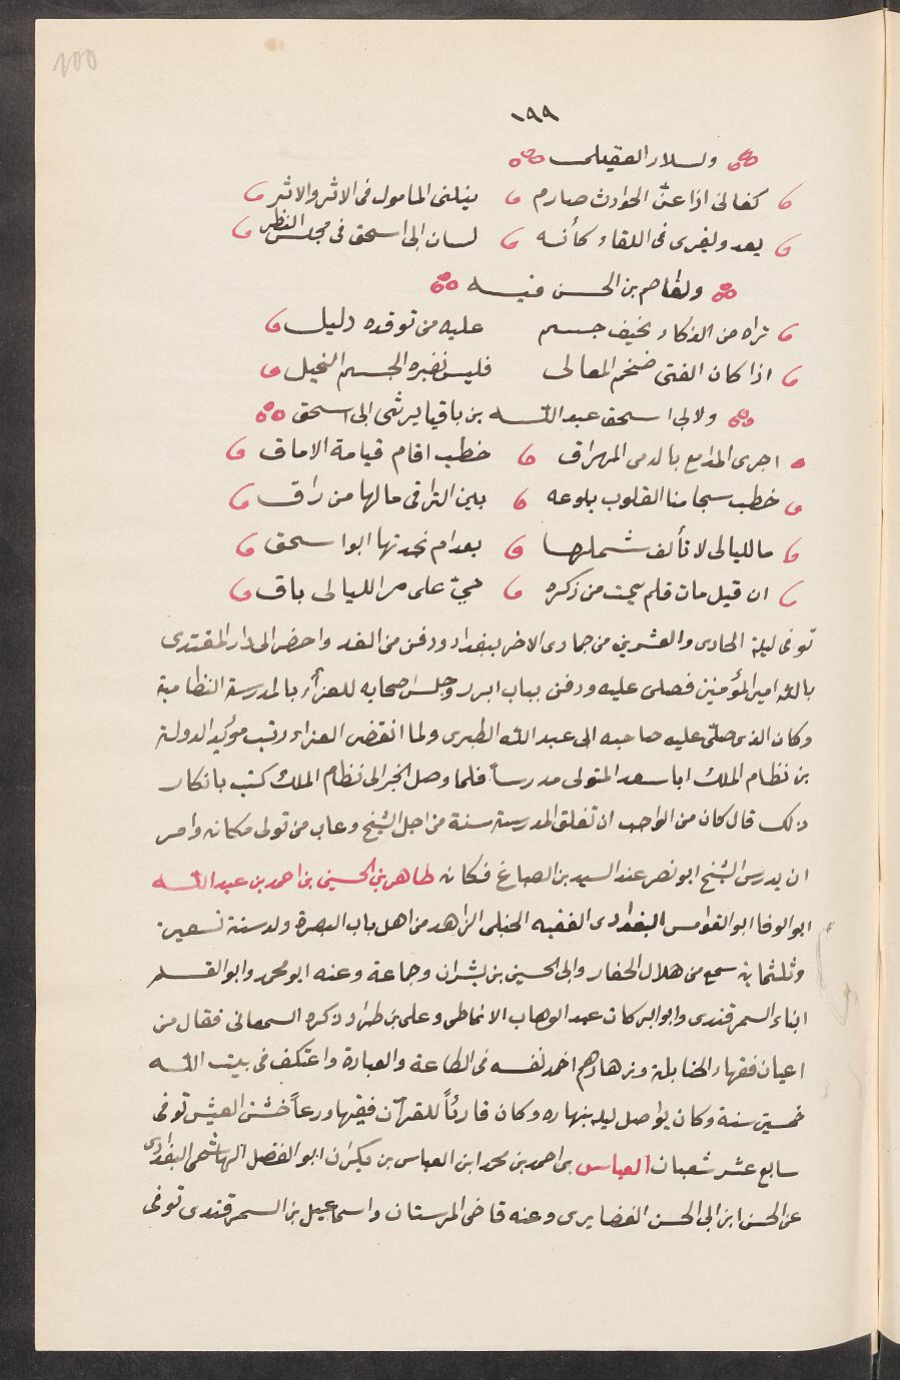 100
١٩٩
ولسلار العقيلى
كفانى اذا عنّ الحوادث صارم ينيلنى المامول فى الاثر والاثر
يعد ويفرى فى اللقاء كأنه لسان ابى اسحق فى مجلس النظر
ولعاصم بن الحسن فيه
تراه من الذكاء نحيف جسم عليه من توقده دليل
اذا كان الفتى ضخم المعالى فليس نضيره الجسم النحيل
ولابى اسحق عبد الله بن باقيا يرثى ابى اسحق
اجرى المدامع بالدمى المهراق خطب اقام قيامة الاماق
خطب سجا منا القلوب بلوعه بين التراقى مالها من راق
ما لليالى لا تألف شملها بعد ام نحدتها ابوا سحق
ان قيل مات فلم يمت من ذكره حىّ على مر الليالى باق
توفى ليلة الحادى والعشرين من جمادى الاخر ببغداد ودفن من الغد واحضر الى دار المقتدى
بالله امير المؤمنين فصلى عليه ودفن بباب ابرر وجلس اصحابه للعزاء بالمدرسة النظامية
وكان الذى صلّى عليه صاحبه ابى عبد الله الطبرى ولما انقضى العزاء رتب مؤيد الدولة
بن نظام الملك ابا سعد المتولى مدرساً فلما وصل الخبر الى نظام الملك كتب بانكار
ذلك قال كان من الواجب ان تغلق المدرسة سنة من اجل الشيخ وعاب من تولى مكانه وامر
ان يدرس الشيخ ابو نصر عند السيد بن الصباغ فكان طاهر بن الحسين بن احمد بن عبد الله
ابو الوفا ابو القوامس البغدادى الفقيه الحنبلى الزاهد من اهل باب البصرة ولد سنة تسعين
وثلثمائة سمع من هلال الحفار وابى الحسين بن بشران وجماعة وعنه ابو محمد وابو القسم
ابناء السمرقندى وابو البركات عبد الوهاب الانماطى وعلى بن طراد ذكره السمعانى فقال من
اعيان فقهاء الحنابلة وزهادهم اخمد نفسه فى الطاعة والعبادة واعتكف فى بيت الله
خمسين سنة وكان يواصل ليله بنهاره وكان قارئاً للقرآن فقيها ورعاً خشن العيش توفى
سابع عشر شعبان العباس بن احمد بن محمد ابن العباس بن بكران ابو الفضل الهاشمى البغدادى
عن الحسن ابن ابى الحسن الغضايرى وعنه قاضى المرستان واسماعيل بن السمرقندى توفى